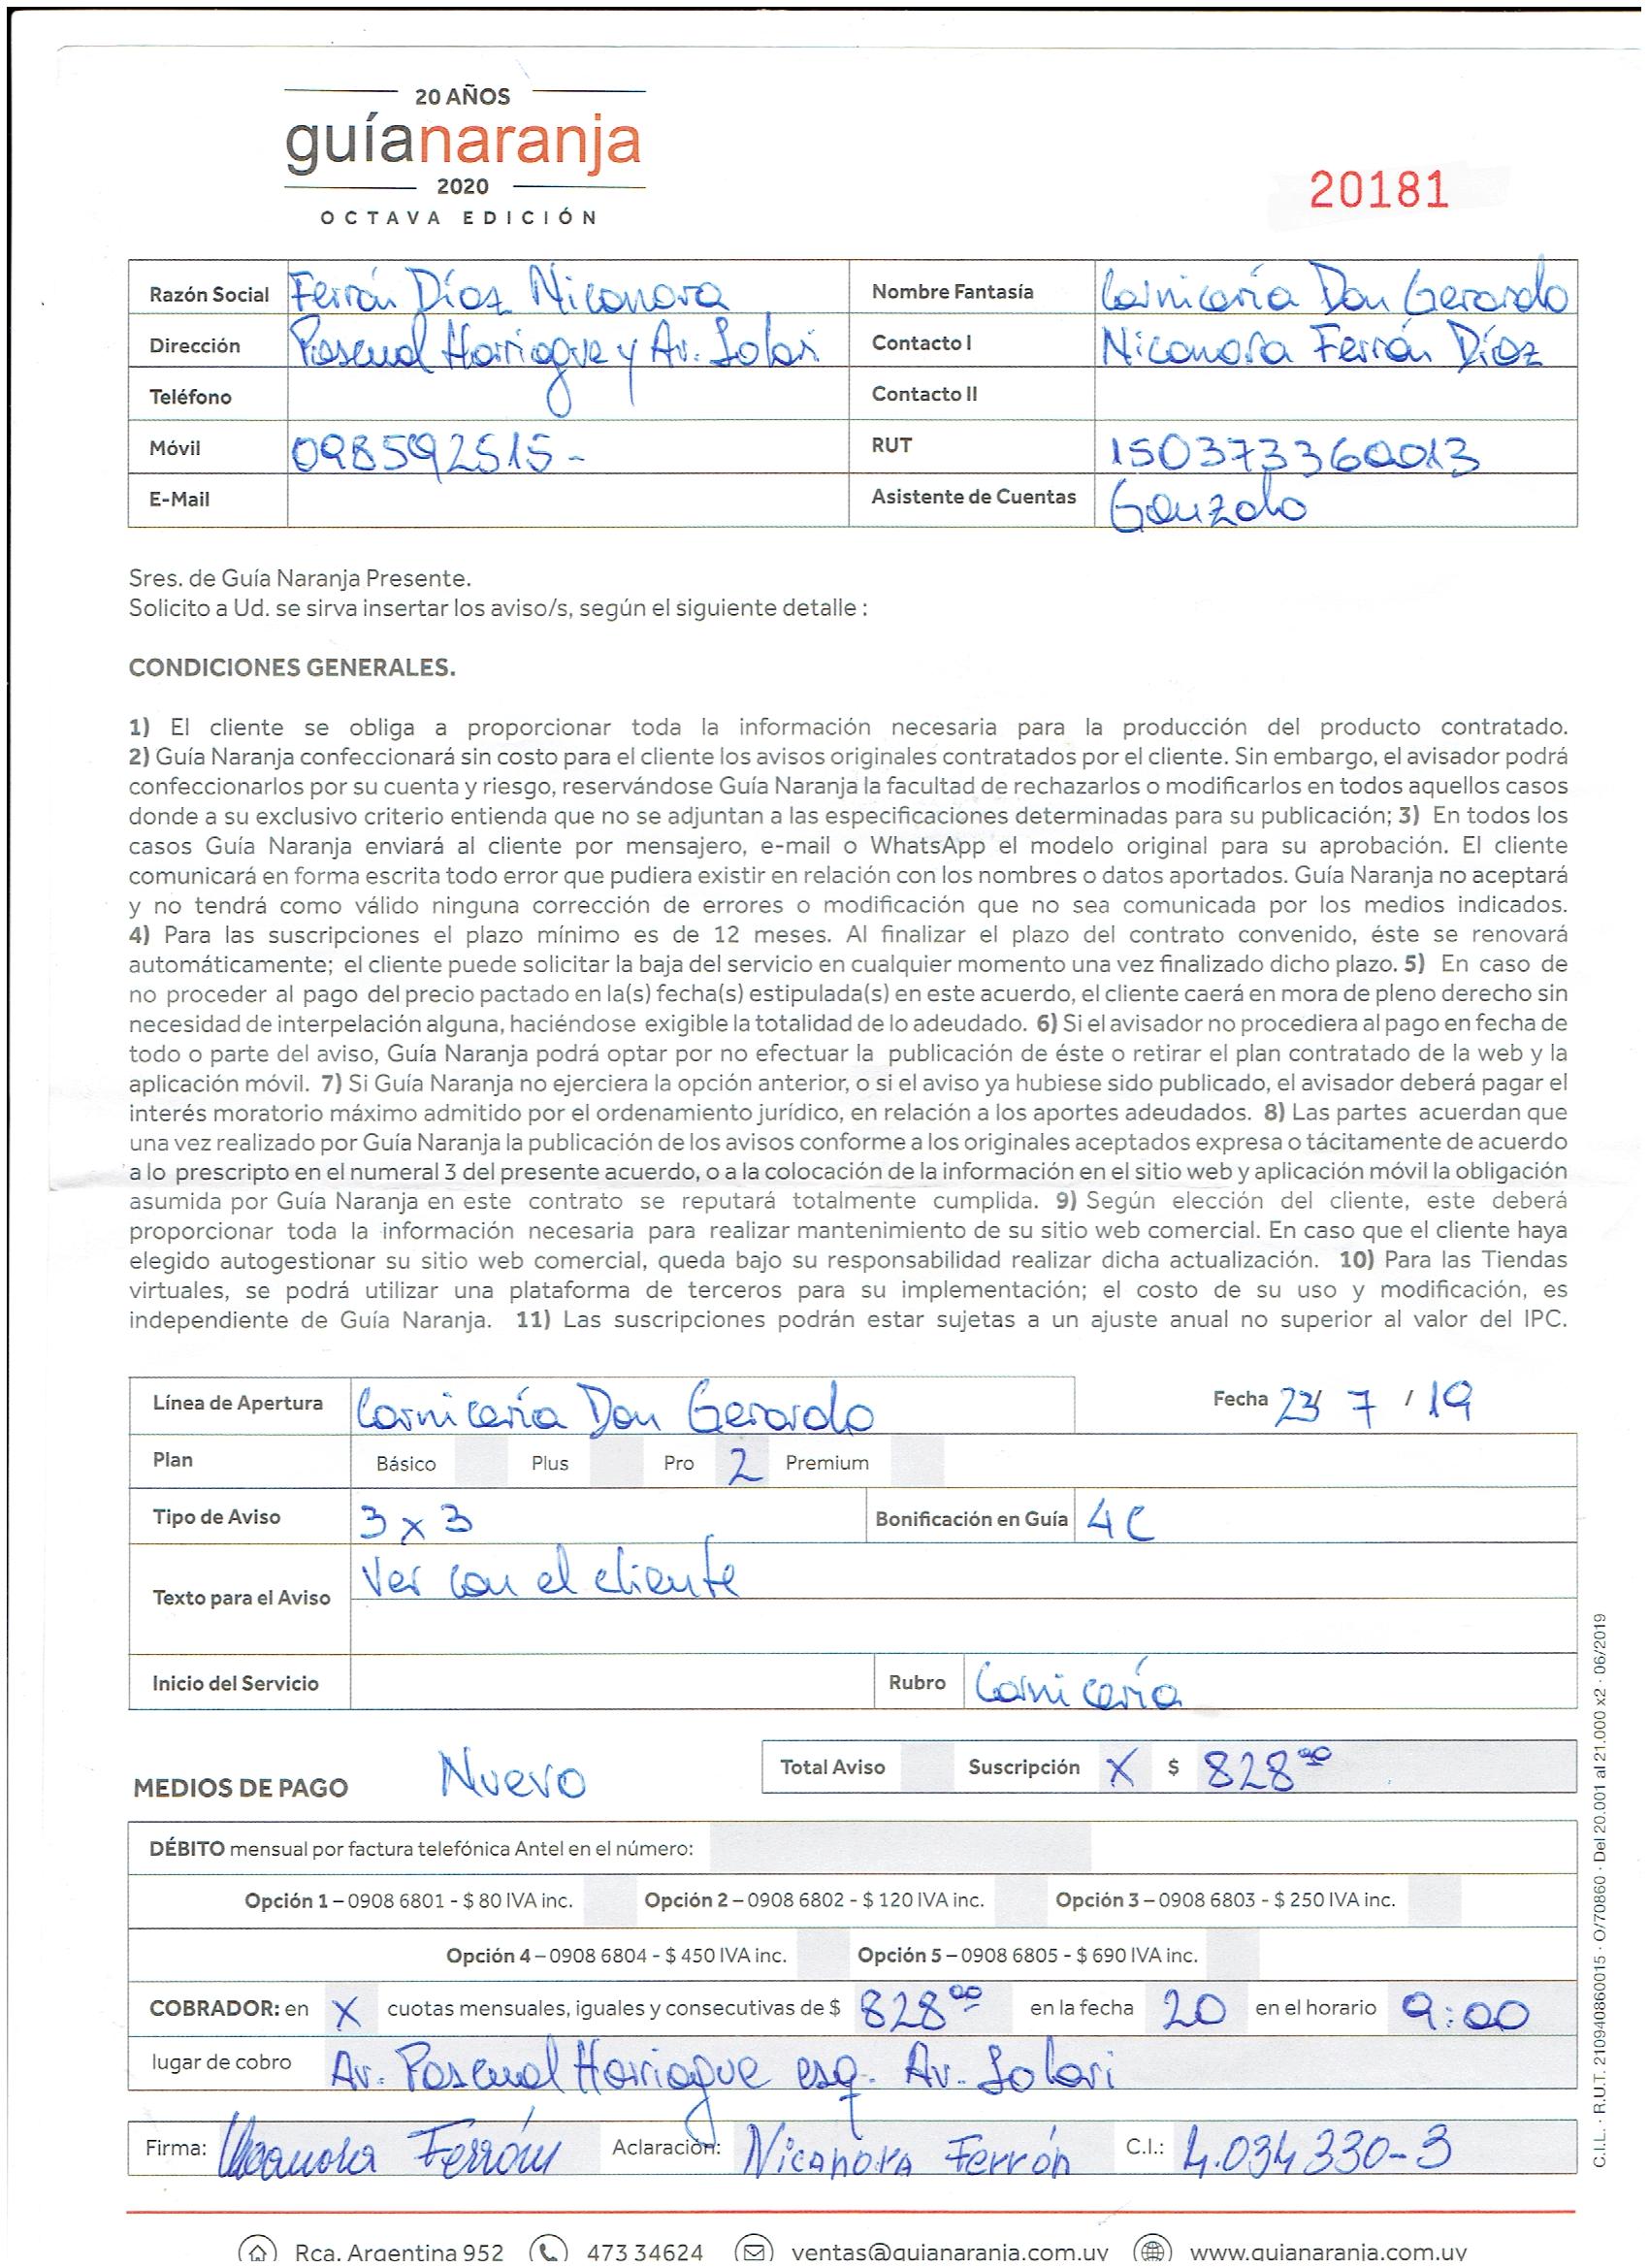 20 AÑOS
guíanaranja
2020
OCTAVA EDICIÓN
20181
Razón Social Ferrán Díaz Niconora Nombre Fantasía Carnicería Don Gerardo
Dirección Pascual Harriague y Av. Solari Contacto I Niconora Ferrán Díaz
Teléfono Contacto II
Móvil 098592515- RUT 150373360013
E-Mail Asistente de Cuentas Gonzalo
Sres. de Guía Naranja Presente.
Solicito a Ud. se sirva insertar los aviso/s, según el siguiente detalle :
CONDICIONES GENERALES.
1) El cliente se obliga a proporcionar toda la información necesaria para la producción del producto contratado.
2) Guía Naranja confeccionará sin costo para el cliente los avisos originales contratados por el cliente. Sin embargo, el avisador podrá
confeccionarlos por su cuenta y riesgo, reservándose Guía Naranja la facultad de rechazarlos o modificarlos en todos aquellos casos
donde a su exclusivo criterio entienda que no se adjuntan a las especificaciones determinadas para su publicación; 3) En todos los
casos Guía Naranja enviará al cliente por mensajero, e-mail o WhatsApp el modelo original para su aprobación. El cliente
comunicará en forma escrita todo error que pudiera existir en relación con los nombres o datos aportados. Guía Naranja no aceptará
y no tendrá como válido ninguna corrección de errores o modificación que no sea comunicada por los medios indicados.
4) Para las suscripciones el plazo mínimo es de 12 meses. Al finalizar el plazo del contrato convenido, éste se renovará
automáticamente; el cliente puede solicitar la baja del servicio en cualquier momento una vez finalizado dicho plazo. 5) En caso de
no proceder al pago del precio pactado en la(s) fecha(s) estipulada(s) en este acuerdo, el cliente caerá en mora de pleno derecho sin
necesidad de interpelación alguna, haciéndose exigible la totalidad de lo adeudado. 6) Si el avisador no procediera al pago en fecha de
todo o parte del aviso, Guía Naranja podrá optar por no efectuar la publicación de éste o retirar el plan contratado de la web y la
aplicación móvil. 7) Si Guía Naranja no ejerciera la opción anterior, o si el aviso ya hubiese sido publicado, el avisador deberá pagar el
interés moratorio máximo admitido por el ordenamiento jurídico, en relación a los aportes adeudados. 8) Las partes acuerdan que
una vez realizado por Guía Naranja la publicación de los avisos conforme a los originales aceptados expresa o tácitamente de acuerdo
a lo prescripto en el numeral 3 del presente acuerdo, o a la colocación de la información en el sitio web y aplicación móvil la obligación
asumida por Guía Naranja en este contrato se reputará totalmente cumplida. 9) Según elección del cliente, este deberá
proporcionar toda la información necesaria para realizar mantenimiento de su sitio web comercial. En caso que el cliente haya
elegido autogestionar su sitio web comercial, queda bajo su responsabilidad realizar dicha actualización. 10) Para las Tiendas
virtuales, se podrá utilizar una plataforma de terceros para su implementación; el costo de su uso y modificación, es
independiente de Guía Naranja. 11) Las suscripciones podrán estar sujetas a un ajuste anual no superior al valor del IPC.
Línea de Apertura Carnicería Don Gerardo Fecha 23/ 7 / 19
Plan Básico Plus Pro 2 Premium
Tipo de Aviso 3 x 3 Bonificación en Guía 4C
Texto para el Aviso Ver con el cliente
Inicio del Servicio Rubro Carnicería
MEDIOS DE PAGO Nuevo Total Aviso Suscripción X $ 828 00
DÉBITO mensual por factura telefónica Antel en el número:
Opción 1 – 0908 6801 - $ 80 IVA inc. Opción 2 – 0908 6802 - $ 120 IVA inc. Opción 3 – 0908 6803 - $ 250 IVA inc.
Opción 4 – 0908 6804 - $ 450 IVA inc. Opción 5 – 0908 6805 - $ 690 IVA inc.
COBRADOR: en X cuotas mensuales, iguales y consecutivas de $ 828 00 en la fecha 20 en el horario 9:00
lugar de cobro Av. Pascual Harriague esq. Av. Solari
Firma: Nicanora Ferrón Aclaración: Nicanora Ferrón C.I.: 4.034.330-3
C.I.L. · R.U.T. 210940860015 · O/70860 · Del 20.001 al 21.000 x2 · 06/2019
Rca. Argentina 952 473 34624 ventas@guianaranja.com.uy www.guianaranja.com.uy